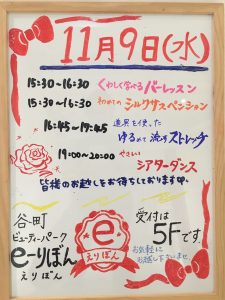 11月9日(水)
15:30~16:30 くわしく学べるバーレッスン
15:30~16:30 はじめてのシルクサスペンション
16:45~17:45 道具を使った
ゆるめて流すストレッチ
19:00~20:00 やさしい
シアターダンス
皆様のお越しをお待ちしております
谷町
ビューティーパーク
e-りぼん
えりぼん
e
えりぼん
受付は
5Fです。
お気軽に
お越し下さいませ